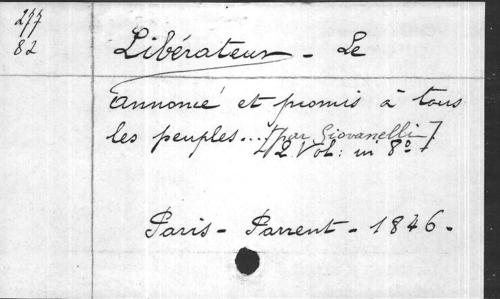 277
82
Libérateur - Le
annoncé et promis à tous
les peuples... [par Giovanelli]
2 Vol: in 8º
Paris - Parrent - 1846 -